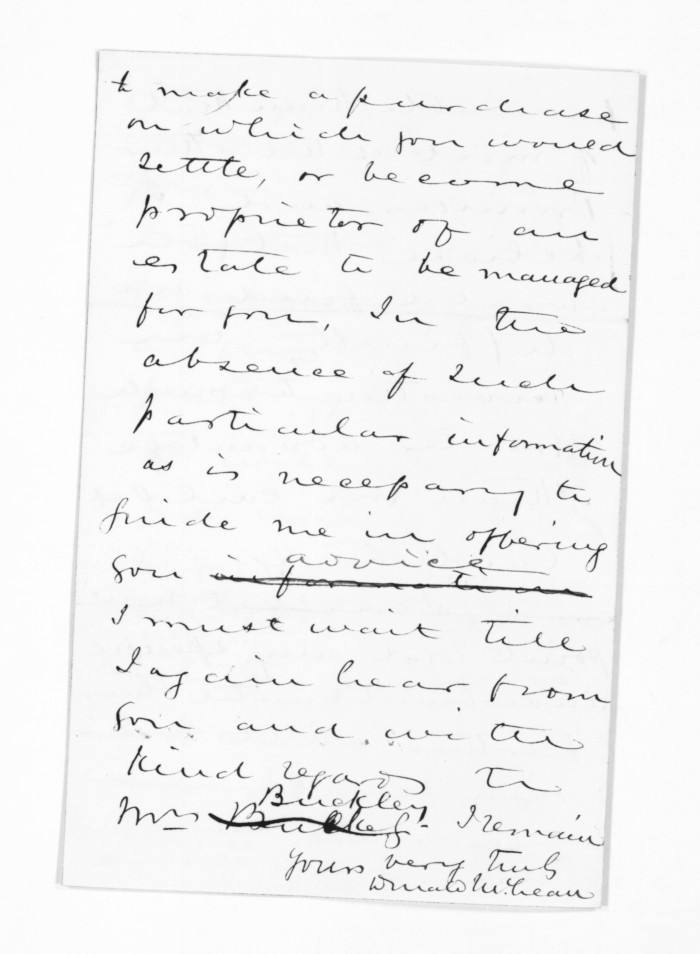 to make a purchase
on which you would
settle, or become
proprietor of an
estate to be managed
for you, In the
absence of such
particular information
as is necessary to
guide me in offering
advice
you information
I must wait till
I again hear from
you and with
kind regards to
Buckley
Mrs I remain
yours very truly
Donald McLean